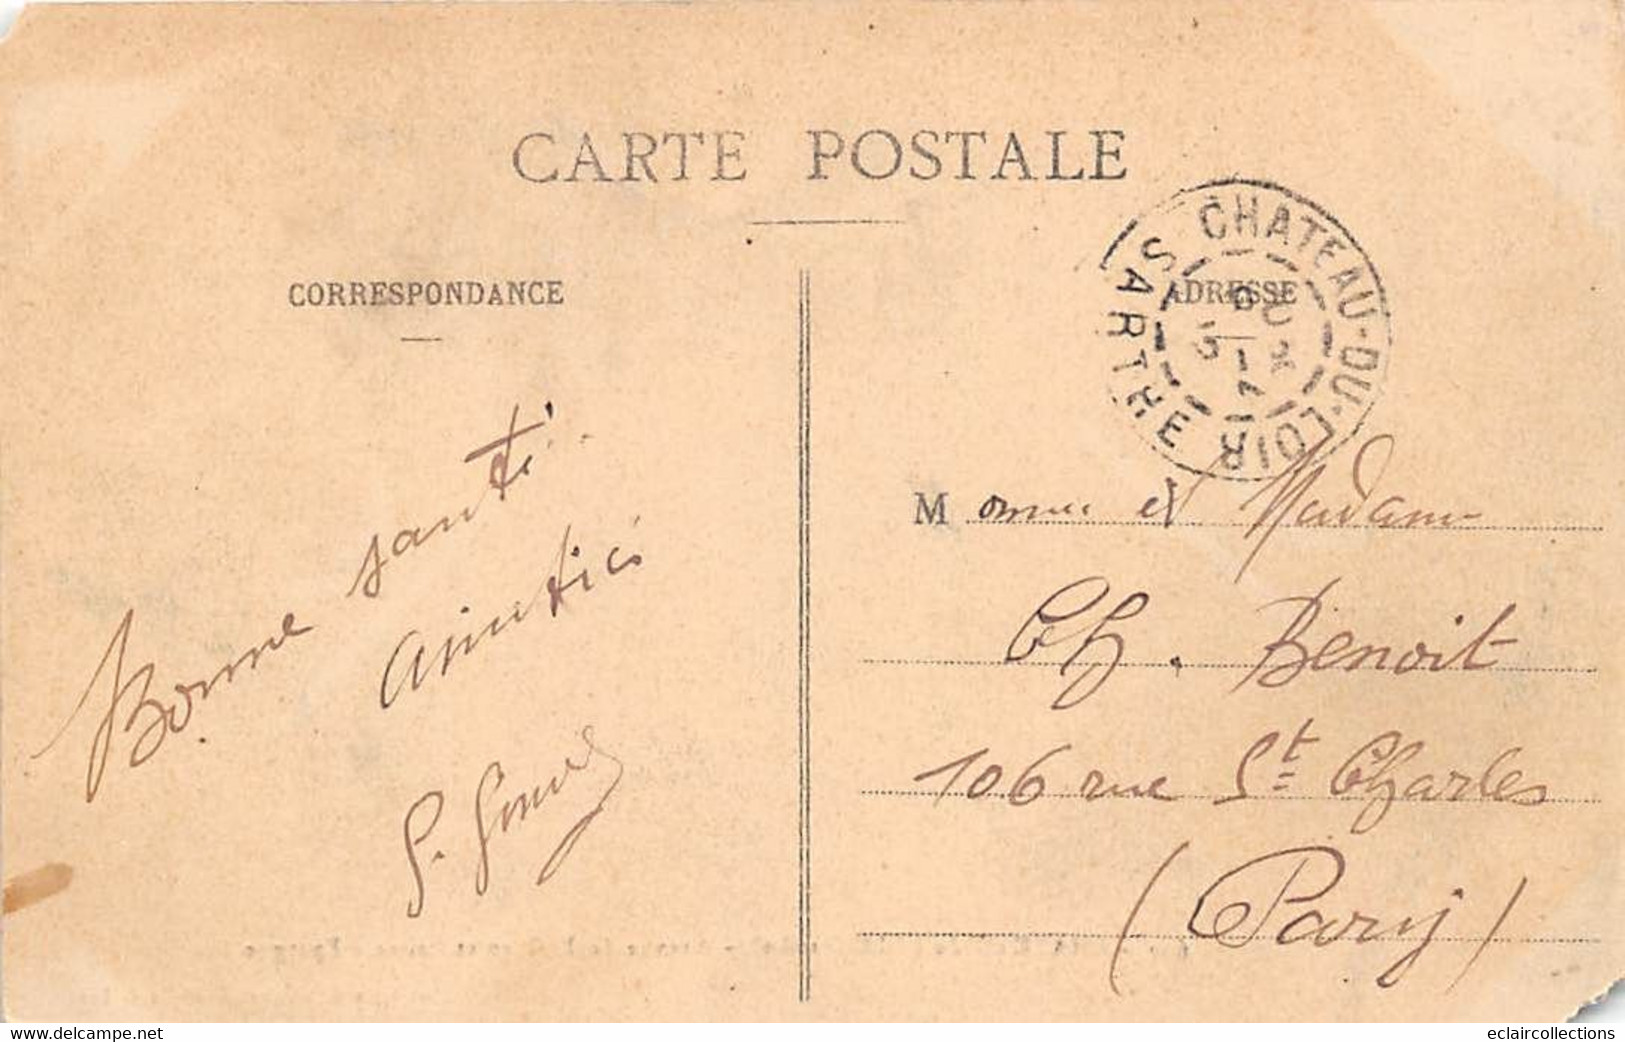 CARTE POSTALE
CORRESPONDANCE
ADRESSE
CHATEAU-DU-LOIR
SARTHE
Bonne santé
Amitiés
M onsieur et Madame
Ch. Benoit
106 rue St Charles
(Paris)
www.delcampe.net
eclaircollections